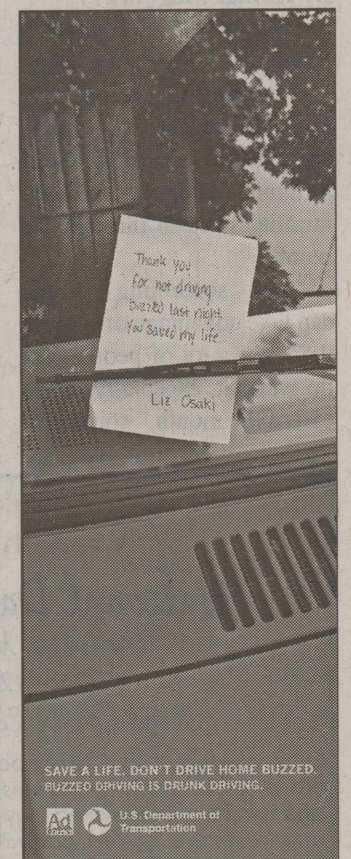 Thank you
for not driving
buzzed last night.
You saved my life
Liz Osaki
SAVE A LIFE. DON'T DRIVE HOME BUZZED.
BUZZED DRIVING IS DRUNK DRIVING.
Ad
Council
U.S. Department of
Transportation